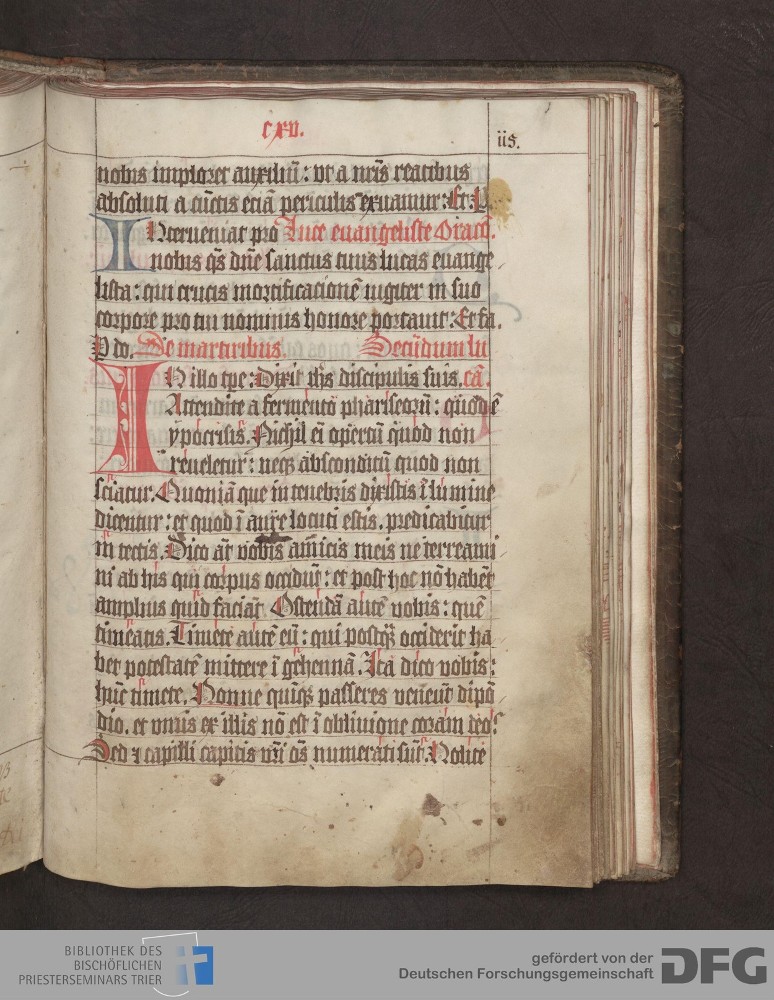 cxv.
iis.
nobis imploret auxiliū: vt a nr̄is reatibus
absoluti a cūctis eciā periculis exuamur: Et
INterueniat pro Luce euangeliste Oracō.
nobis qs̄ dn̄e sanctus tuus lucas euange
lista: qui crucis mortificacionē iugiter in suo
corpore pro tui nominis honore portauit: Et fa.
De martiribus. Secūdum lu
IN illo tp̄e: Dixit ih̄s discipulis suis. cā.
Attendite a fermento phariseorū: quod ē
ypocrisis. Nichil eī opertū quod non
reueletur: neqꝫ absconditū quod non
sciatur. Quoniā que in tenebris dixistis ī lumine
dicentur: et quod ī aure locuti estis. predicabitur
in tectis. Dico aūt vobis amicis meis ne terreami
ni ab his qui corpus occidūt: et post hoc nō habēt
amplius quid faciāt. Ostendā autē vobis: quē
timeatis. Timete autē eū: qui postqꝫ occiderit ha
bet potestatē mittere ī gehennā. Ita dico vobis:
hūc timete. Nonne quīqꝫ passeres veneūt dipō
dio. et vnus ex illis nō est ī obliuione coram deo?
Sed ⁊ capilli capitis vr̄i oēs numerati sūt. Nolite
BIBLIOTHEK DES
BISCHÖFLICHEN
PRIESTERSEMINARS TRIER
gefördert von der
Deutschen Forschungsgemeinschaft
DFG